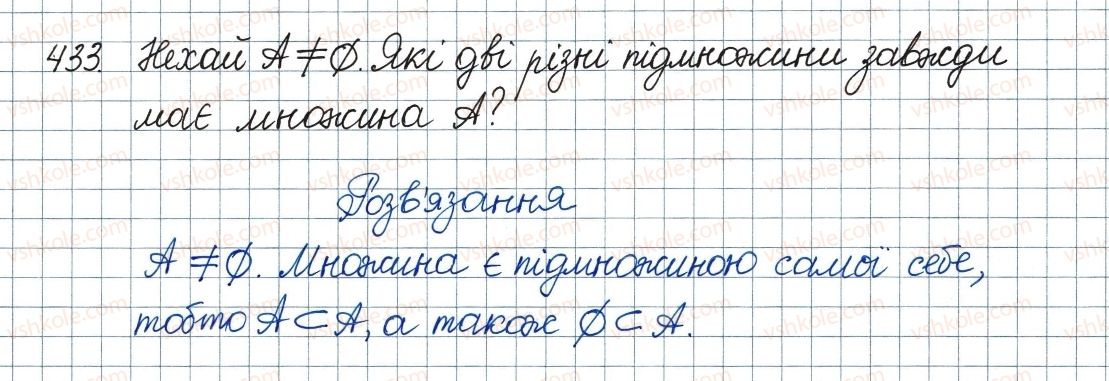 433. Нехай A ≠ ∅. Які дві різні підмножини завжди
має множина A?
Розв'язання
A ≠ ∅. Множина є підмножиною самої себе,
тобто A ⊂ A, а також ∅ ⊂ A.